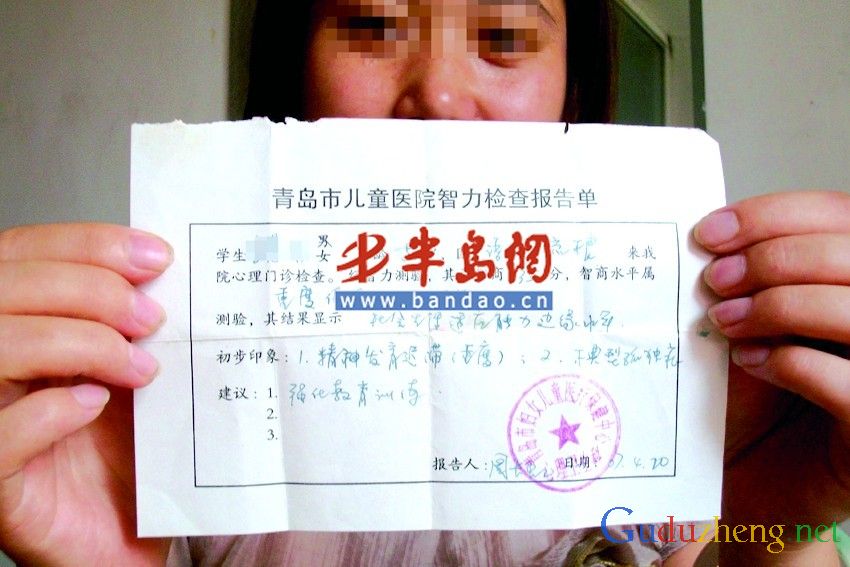 青岛市儿童医院智力检查报告单
学生 男 来我
女
院心理门诊检查。 智力测验,其 商 分,智商水平属
重度
半岛網
www.bandao.cn
测验,其结果显示 社会生活适应能力边缘水平.
初步印象:1.精神发育迟滞(重度);2.不典型孤独症
建议:1.强化教育训练.
2.
3.
报告人: 日期: 07.4.20
Guduzheng.net